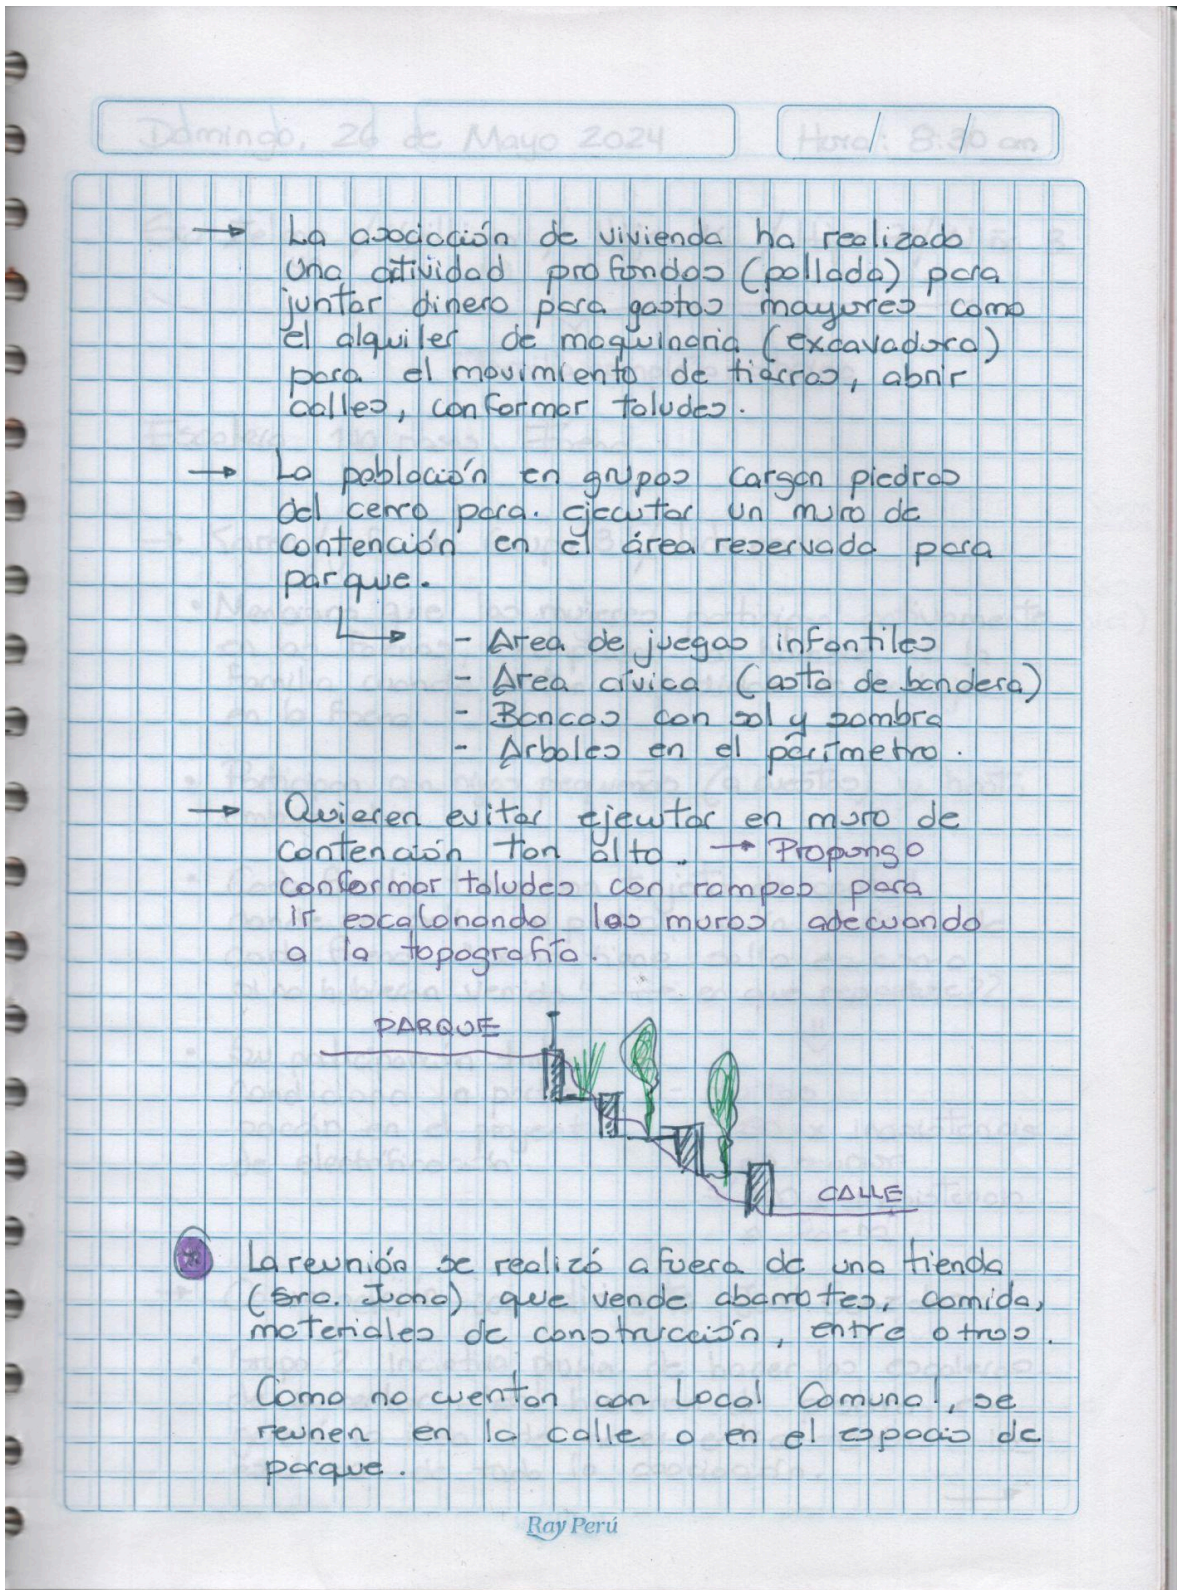 → La asociación de vivienda ha realizado
una actividad profondos (pollada) para
juntar dinero para gastos mayores como
el alquiler de maquinaria (excavadora)
para el movimiento de tierras, abrir
calles, conformar taludes.
→ La población en grupos cargan piedras
del cerro para. ejecutar un muro de
contención en el área reservada para
parque.
→ - Area de juegos infantiles
- Area cívica (asta de bandera)
- Bancas con sol y sombra
- Arboles en el perímetro.
→ Quieren evitar ejecutar en muro de
contención tan alto. → Propongo
conformar taludes con rampas para
ir escalonando los muros adecuando
a la topografía.
PARQUE
CALLE
* La reunión se realizó afuera de una tienda
(Sra. Juana) que vende abarrotes, comida,
materiales de construcción, entre otros.
Como no cuentan con Local Comunal, se
reunen en la calle o en el espacio de
parque.
Ray Perú